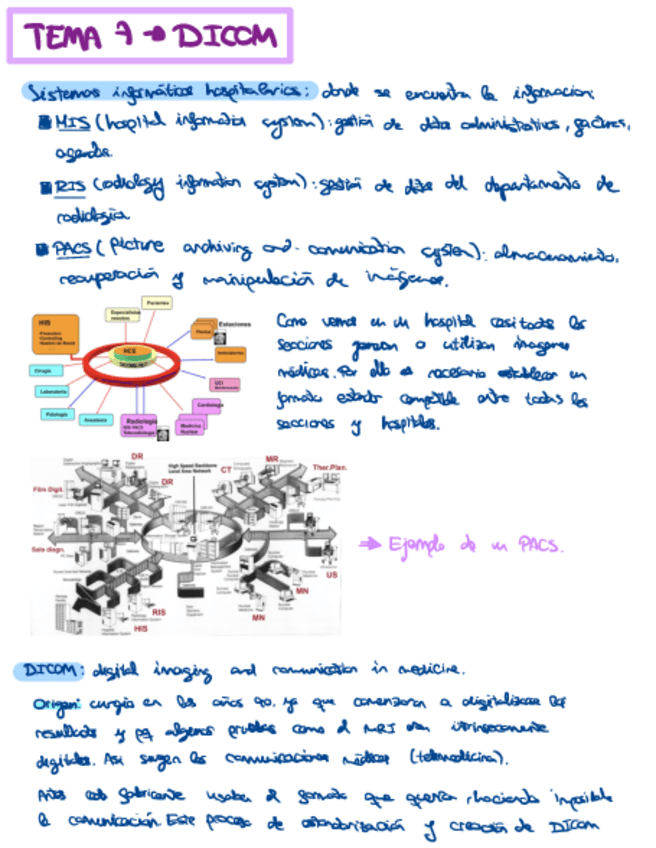 TEMA 7 → DICOM
Sistemas informáticos hospitalarios: donde se encuentra la información:
HIS (hospital information system): gestión de datos administrativos, facturas,
agendas.
RIS (radiology information system): gestión de datos del departamento de
radiología
PACS (Picture archiving and comunication system): almacenamiento,
recuperación y manipulación de imágenes.
Pacientes
Especialistas
HIS
Estaciones
HCE
Cirugía
Laboratorio
Patología
Anestesia
Radiología
UCI
Cardiología
Medicina
Nuclear
Como vemos en un hospital casi todas las
secciones generan o utilizan imágenes
médicas. Por ello es necesario establecer un
formato estándar compatible entre todas las
secciones y hospitales.
DR
DR
High Speed Backbone
Local Area Network
CT
MR
Ther.Plan.
Film Digit.
Sala diagn.
US
MN
MN
RIS
HIS
→ Ejemplo de un PACS.
DICOM: digital imaging and comunication in medicine.
Origen: surgió en los años 90, ya que comenzaron a digitalizarse los
resultados y pq algunas pruebas como el MRI eran intrínsecamente
digitales. Así surgen las comunicaciones médicas (telemedicina).
Antes cada fabricante usaba el formato que quería, haciendo imposible
la comunicación. Este proceso de estandarización y creación de DICOM